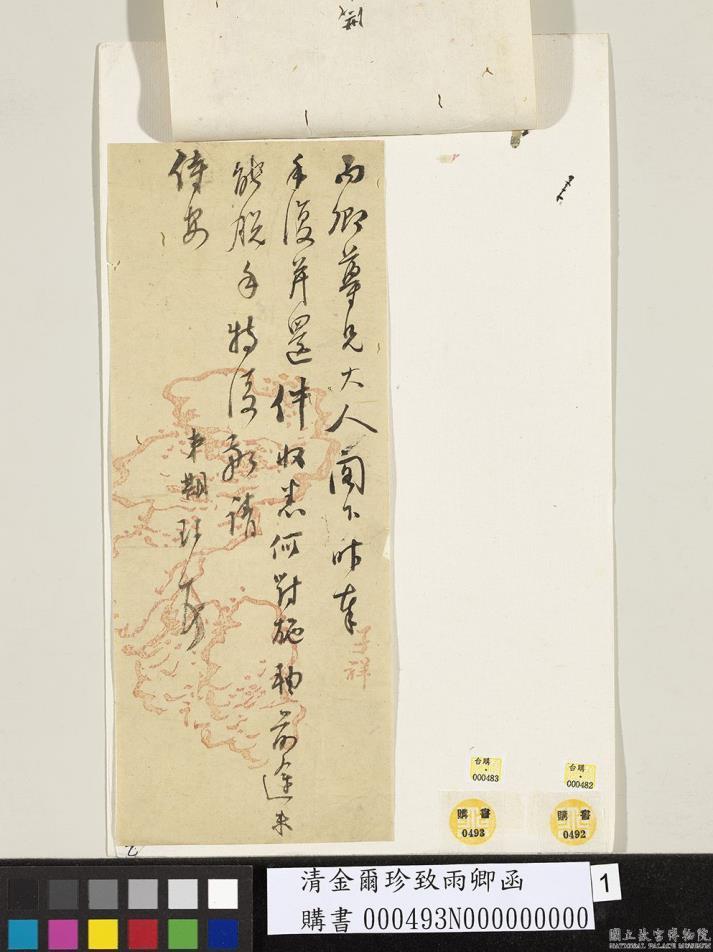 雨卿尊兄大人閣下昨奉
手復并還件收悉何對施軸前途未
能脫手特復敬請
侍安
弟期珍頓
子祥
台購
000483
台購
000482
購書
0493
購書
0492
清金爾珍致雨卿函
購書 000493N000000000
1
國立故宮博物院
NATIONAL PALACE MUSEUM